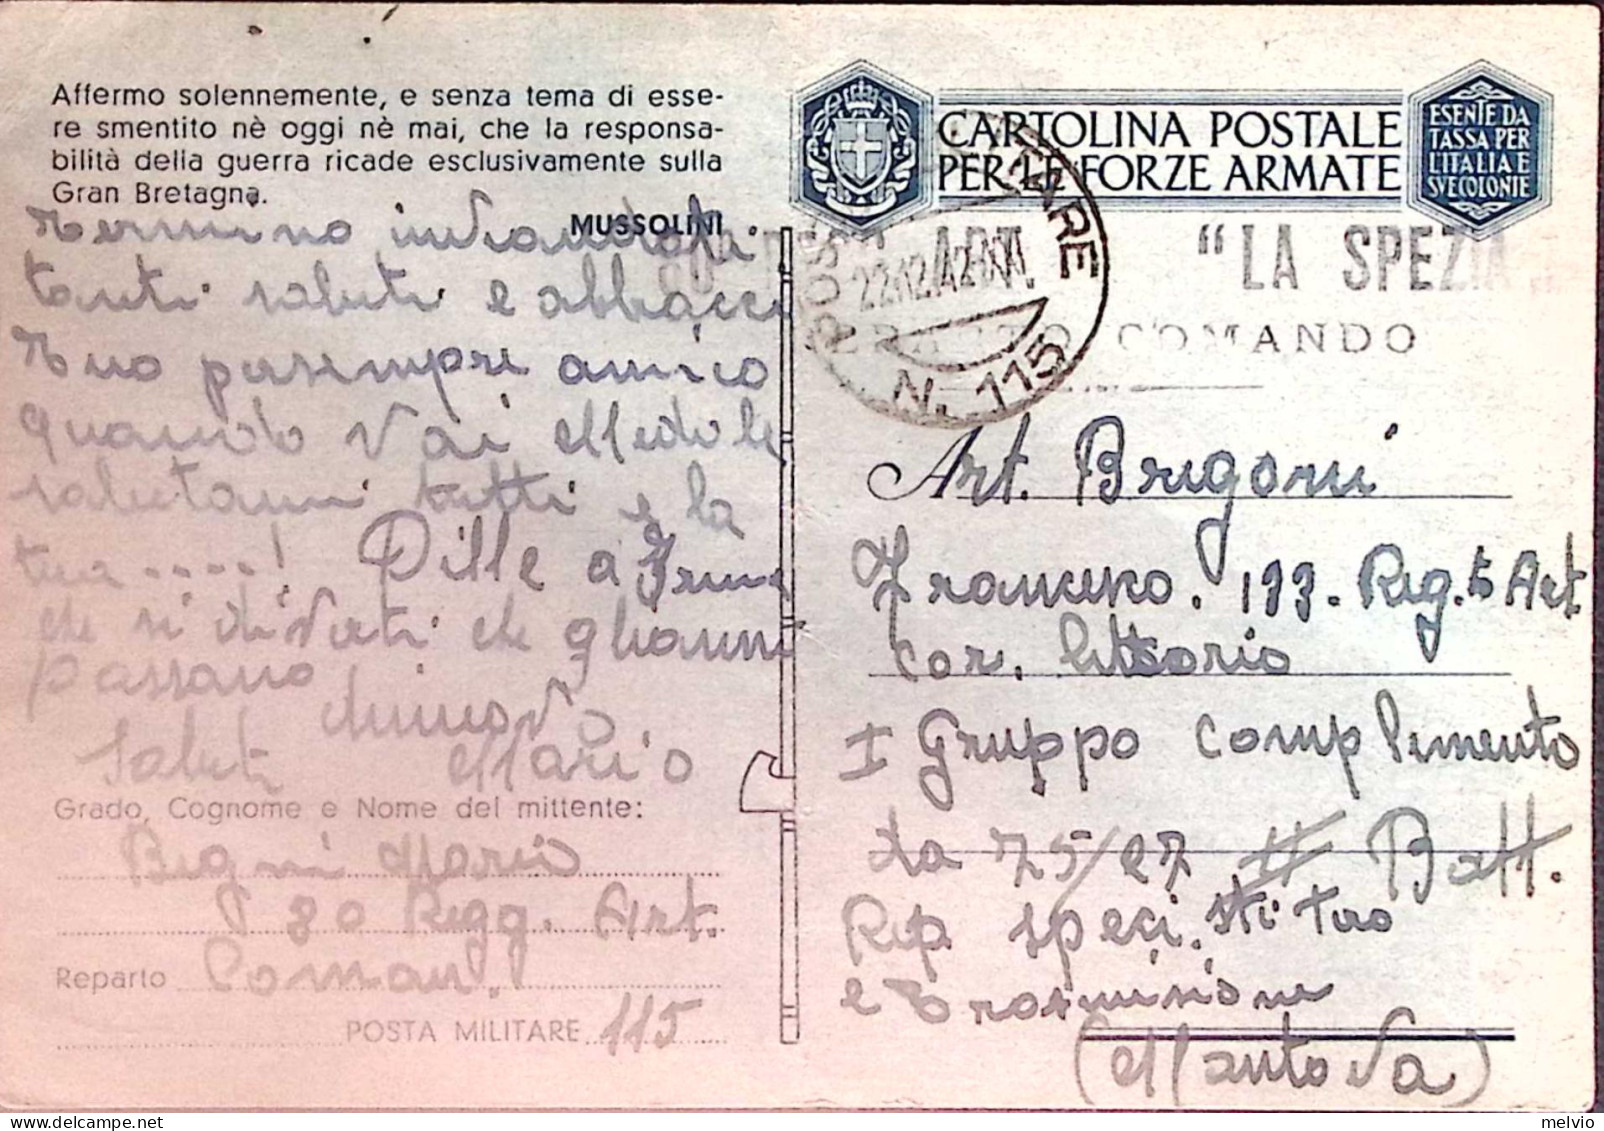 Affermo solennemente, e senza tema di esse-
re smentito nè oggi nè mai, che la responsa-
bilità della guerra ricade esclusivamente sulla
Gran Bretagna.
MUSSOLINI
Termino inviandoti
tanti saluti e abbracci
Tuo per sempre amico
quando vai
salutami tutti e la
tua ....!
Dille a
che si che gli anni
passano
Saluti Mario
Grado, Cognome e Nome del mittente:
Begni Mario
80 Regg. Art.
Reparto Coman.
POSTA MILITARE 115
CARTOLINA POSTALE
PER LE FORZE ARMATE
ESENTE DA
TASSA PER
L'ITALIA E
SVE COLONIE
ART. "LA SPEZIA"
REPARTO COMANDO
22.12.42.XXI
N. 115
Art. Brigoni
Francesco. 133. Reg.to Art.
cor. Littorio
I Gruppo complemento
da 75/27 Batt.
Rep. specialisti Tiro
e Trasmisione
(Mantova)
melvio